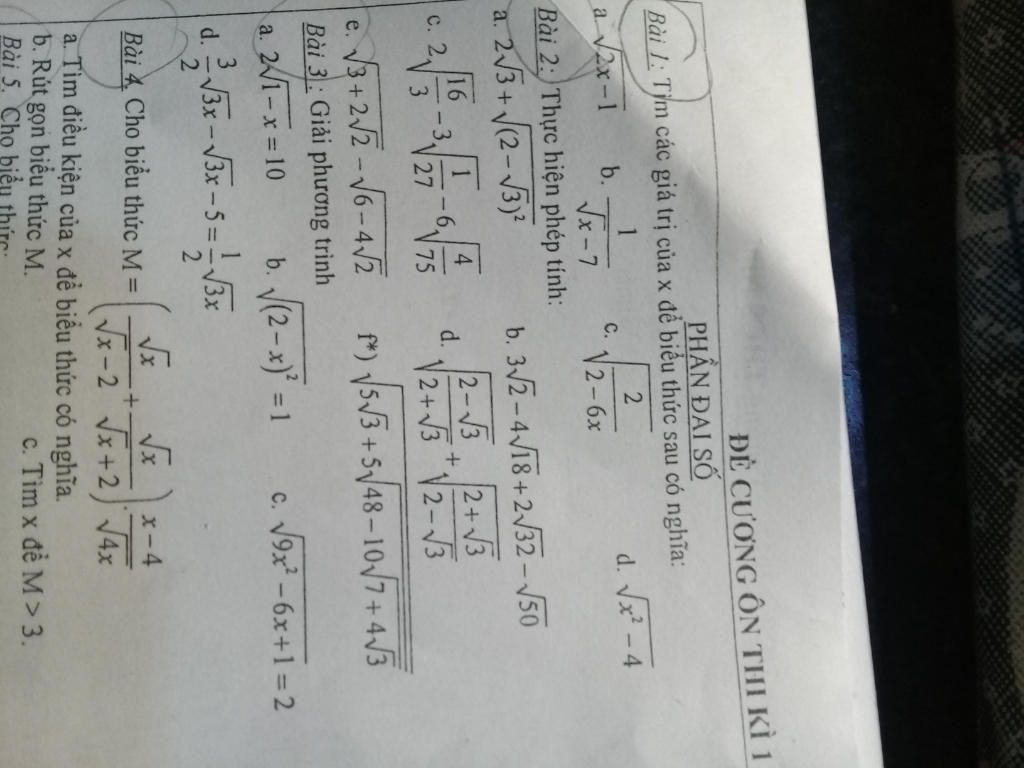 ĐỀ CƯƠNG ÔN THI KÌ 1
PHẦN ĐẠI SỐ
Bài 1: Tìm các giá trị của x để biểu thức sau có nghĩa:
a. √(2x − 1) b. 1/(√x − 7) c. √(2/(2 − 6x)) d. √(x² − 4)
Bài 2: Thực hiện phép tính:
a. 2√3 + √((2 − √3)²) b. 3√2 − 4√18 + 2√32 − √50
c. 2√(16/3) − 3√(1/27) − 6√(4/75) d. √((2 − √3)/(2 + √3)) + √((2 + √3)/(2 − √3))
e. √(3 + 2√2) − √(6 − 4√2) f*) √(5√3 + 5√(48 − 10√(7 + 4√3)))
Bài 3: Giải phương trình
a. 2√(1 − x) = 10 b. √((2 − x)²) = 1 c. √(9x² − 6x + 1) = 2
d. 3/2 √3x − √3x − 5 = 1/2 √3x
Bài 4. Cho biểu thức M = (√x/(√x − 2) + √x/(√x + 2)) . (x − 4)/√4x
a. Tìm điều kiện của x để biểu thức có nghĩa.
b. Rút gọn biểu thức M. c. Tìm x để M > 3.
Bài 5. Cho biểu thức: